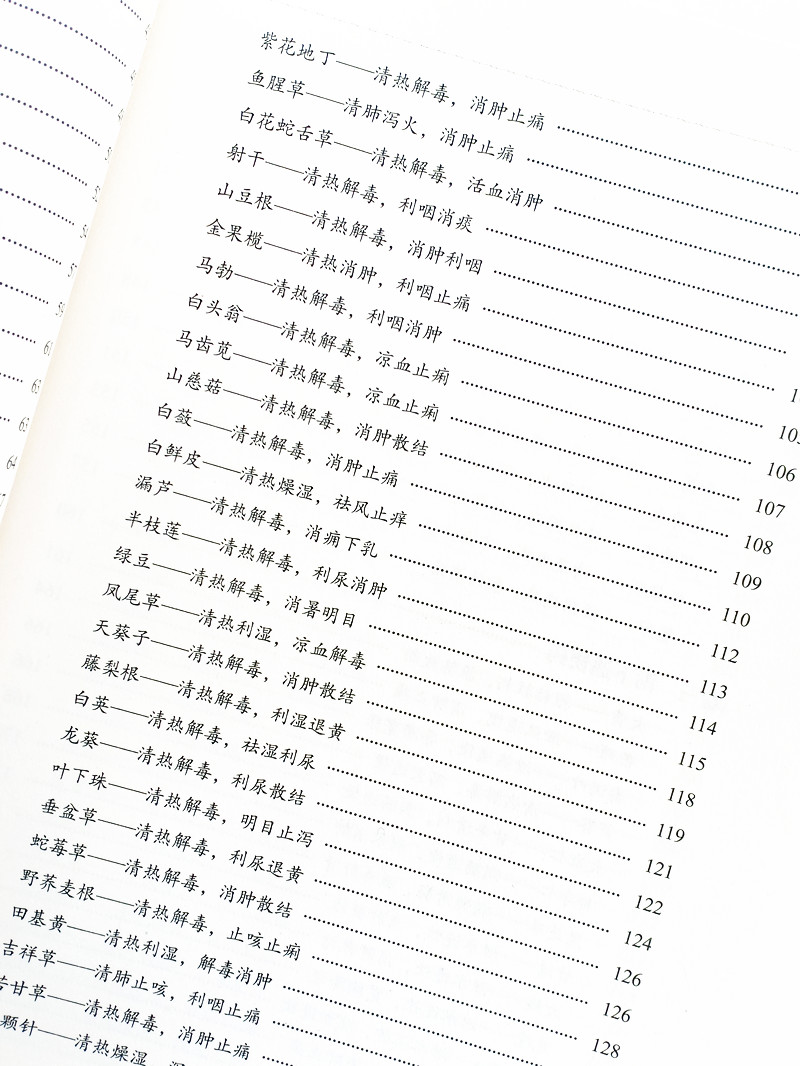 紫花地丁——清热解毒，消肿止痛
鱼腥草——清肺泻火，消肿止痛
白花蛇舌草——清热解毒，活血消肿
射干——清热解毒，利咽消痰
山豆根——清热解毒，消肿利咽
金果榄——清热消肿，利咽止痛
马勃——清热解毒，利咽消肿
白头翁——清热解毒，凉血止痢 106
马齿苋——清热解毒，凉血止痢 107
山慈菇——清热解毒，消肿散结 108
白蔹——清热解毒，消肿止痛 109
白鲜皮——清热燥湿，祛风止痒 110
漏芦——清热解毒，消痈下乳 112
半枝莲——清热解毒，利尿消肿 113
绿豆——清热解毒，消暑明目 114
凤尾草——清热利湿，凉血解毒 115
天葵子——清热解毒，消肿散结 118
藤梨根——清热解毒，利湿退黄 119
白英——清热解毒，祛湿利尿 121
龙葵——清热解毒，利尿散结 122
叶下珠——清热解毒，明目止泻 124
垂盆草——清热解毒，利尿退黄 126
蛇莓草——清热解毒，消肿散结 126
野荞麦根——清热解毒，止咳止痢 128
田基黄——清热利湿，解毒消肿
吉祥草——清肺止咳，利咽止痛
苦甘草——清热解毒，消肿止痛
颗针——清热燥湿，